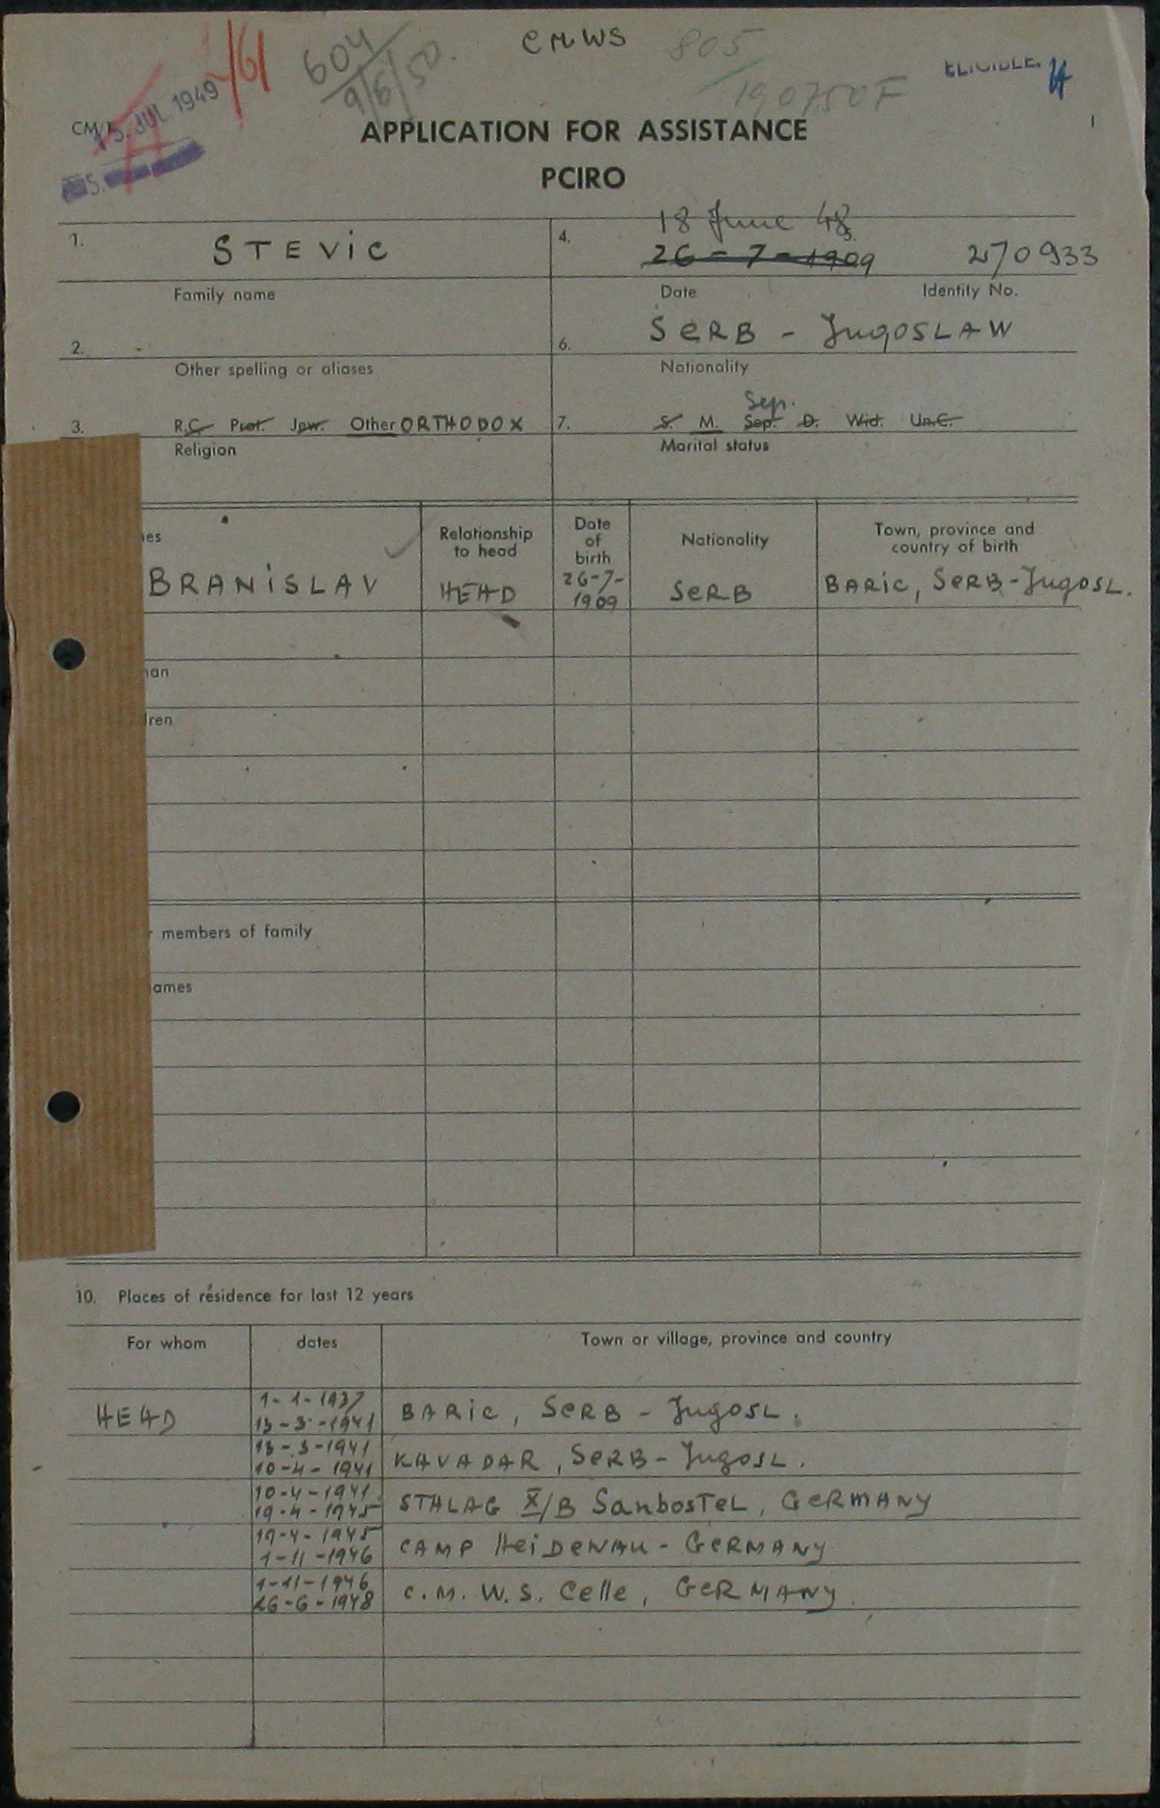 CMWS 805
/61 604
9/6/50.
190750F
ELIGIBLE.
CM/1
15. JUL 1949
1
APPLICATION FOR ASSISTANCE
PCIRO
18 June 48
1. STEVIC 4. 26-7-1909 270933
Family name Date Identity No.
2. - 6. SERB - JugOSLAW
Other spelling or aliases Nationality
Sep.
3. R.C. Prot. Jew. Other ORTHODOX 7. S. M. Sep. D. Wid. Un.C.
Religion Marital status
es Relationship to head Date of birth Nationality Town, province and country of birth
BRANISLAV HEAD 26-7-1909 SERB BARIC, SERB-JugOSL.
an
dren
members of family
ames
10. Places of residence for last 12 years
For whom dates Town or village, province and country
HEAD 1-1-1937 13-3-1941 BARIC, SERB - JugOSL.
13-3-1941 10-4-1941 KAVADAR, SERB - JugOSL.
10-4-1941 19-4-1945 STALAG X/B SanbosTeL, GERMANY
19-4-1945 1-11-1946 CAMP HEIDENAU - GERMANY
1-11-1946 26-6-1948 C.M.W.S. Celle, GERMANY.